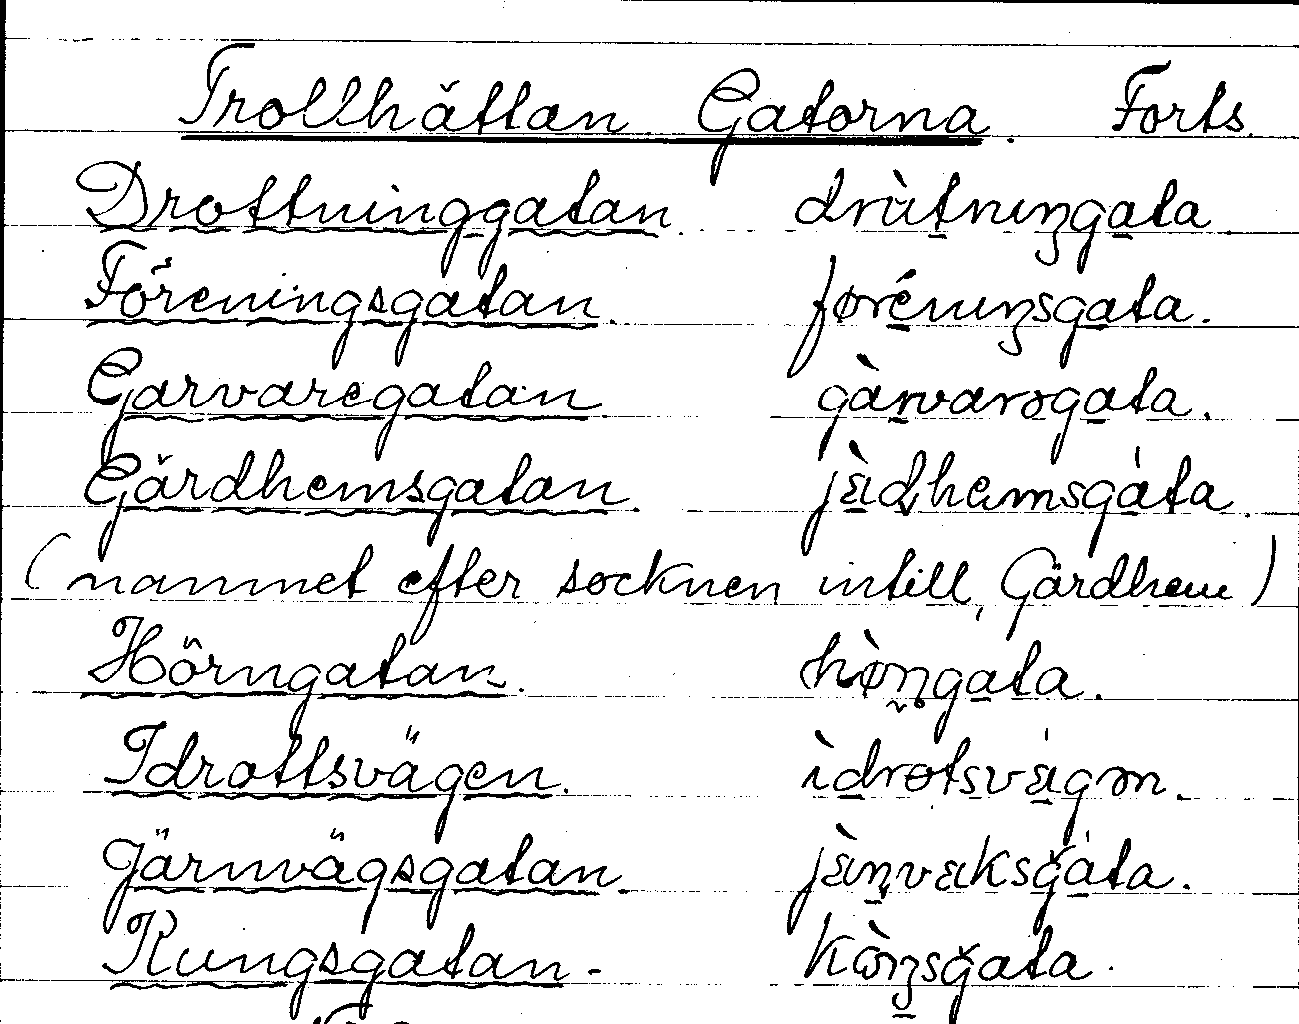 Trollhättan Gatorna. Forts.
Drottninggatan. drùtnıŋgata.
Föreningsgatan. førénıŋsgata.
Garvaregatan. gàrvarəgata.
Gärdhemsgatan. jæ̀ɖhemsgáta.
(namnet efter socknen intill, Gärdhem)
Hörngatan. hø̀ɳgata.
Idrottsvägen. ìdrotsvǽgən.
Järnvägsgatan. jæ̀ɳvæksgáta.
Kungsgatan. kòŋsgata.